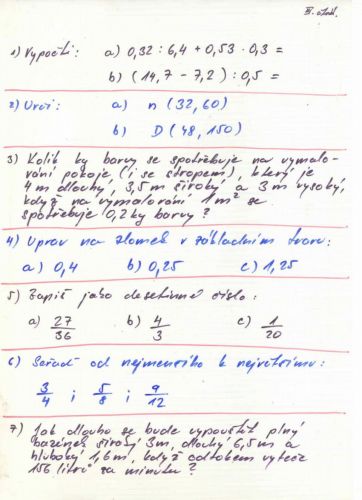 II. odd.
1) Vypočti: a) 0,32 : 6,4 + 0,53 · 0,3 =
b) (14,7 - 7,2) : 0,5 =
2) Urči: a) n (32, 60)
b) D (48, 150)
3) Kolik kg barvy se spotřebuje na vymalo-
vání pokoje (i se stropem), který je
4 m dlouhý, 3,5 m široký a 3 m vysoký,
když na vymalování 1 m² se
spotřebuje 0,2 kg barvy ?
4) Uprav na zlomek v základním tvaru:
a) 0,4 b) 0,25 c) 1,25
5) Zapiš jako desetinné číslo:
a) 27/36 b) 4/3 c) 1/20
6) Seřaď od nejmenšího k největšímu:
3/4 ; 5/8 ; 9/12
7) Jak dlouho se bude vypouštět plný
bazének široký 3m, dlouhý 6,5 m a
hluboký 1,6 m, když odtokem vyteče
156 litrů za minutu ?